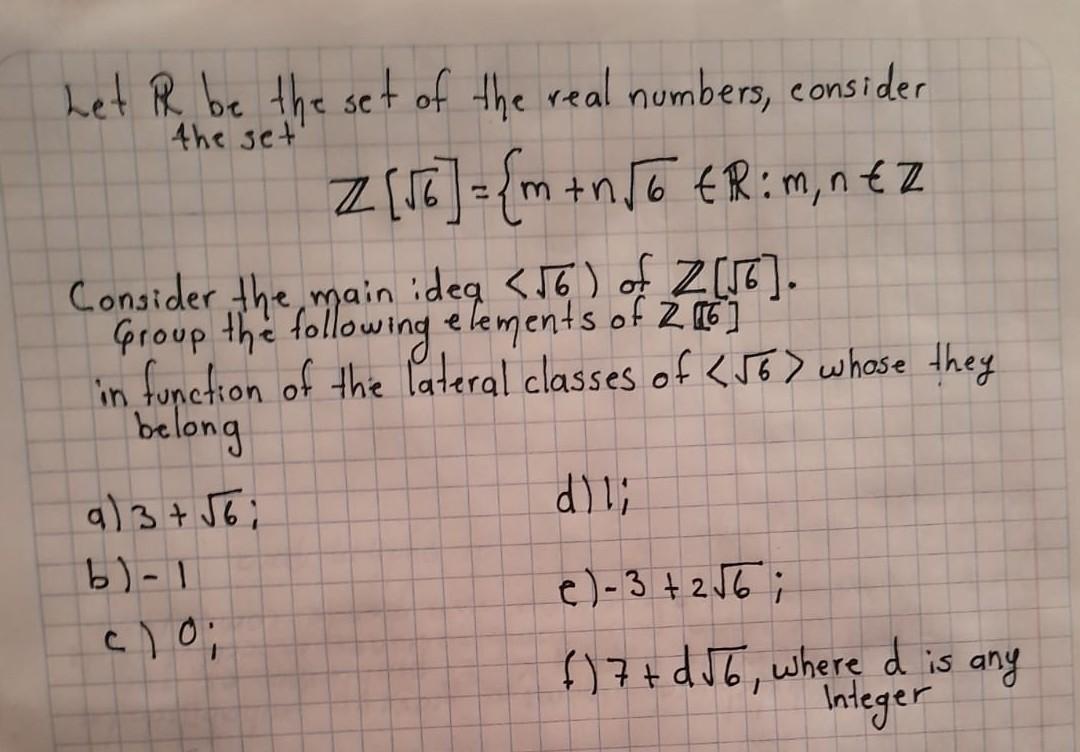 Let ℝ be the set of the real numbers, consider
the set
ℤ[√6]={m+n√6 ∈ℝ:m,n∈ℤ
Consider the main idea <√6) of ℤ[√6].
Group the following elements of ℤ[√6]
in function of the lateral classes of <√6> whose they
belong
a) 3+√6;
d) 1;
b) -1
e) -3+2√6;
c) 0;
f) 7+d√6, where d is any
Integer